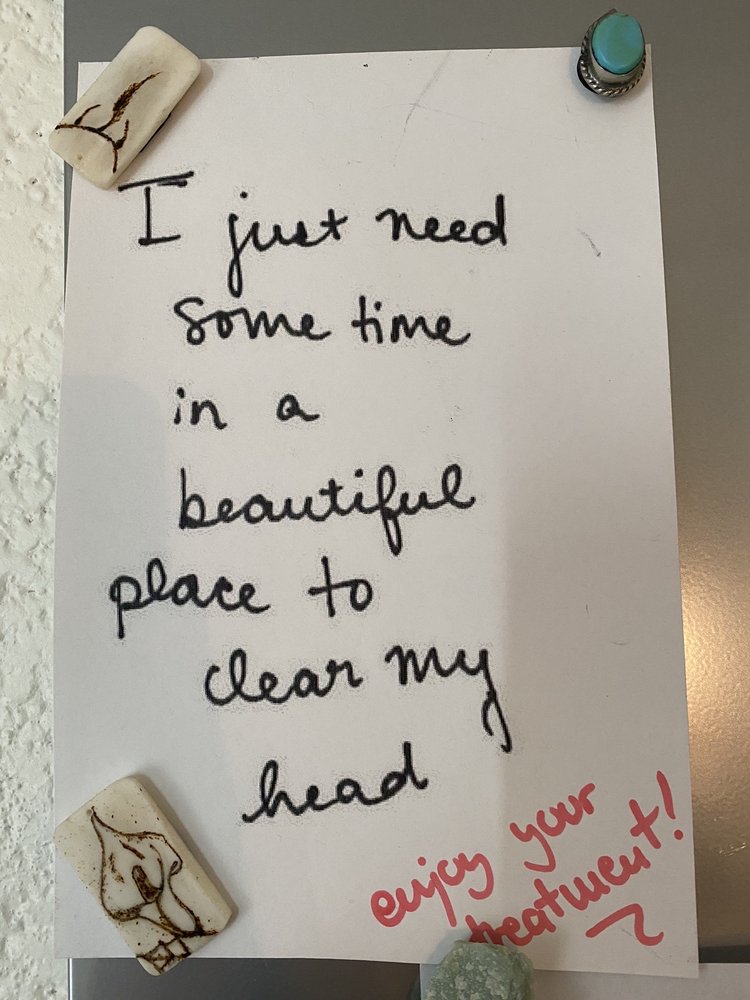 I just need
some time
in a
beautiful
place to
clear my
head
enjoy your
treatment!